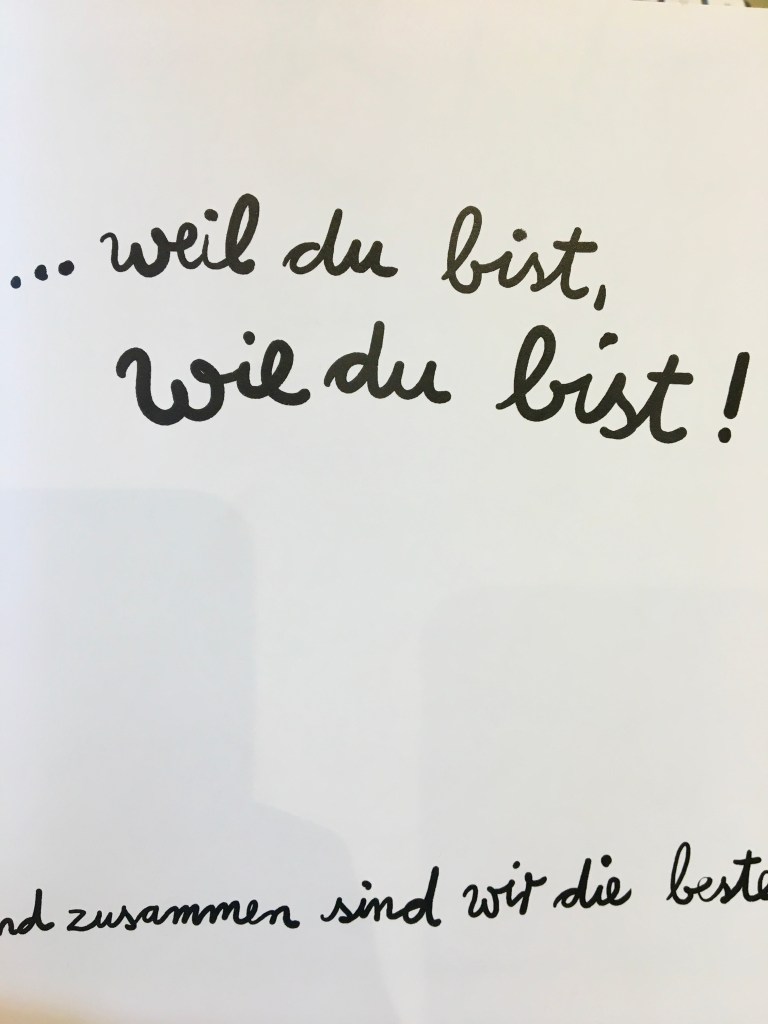 ... weil du bist,
wie du bist!
nd zusammen sind wir die beste